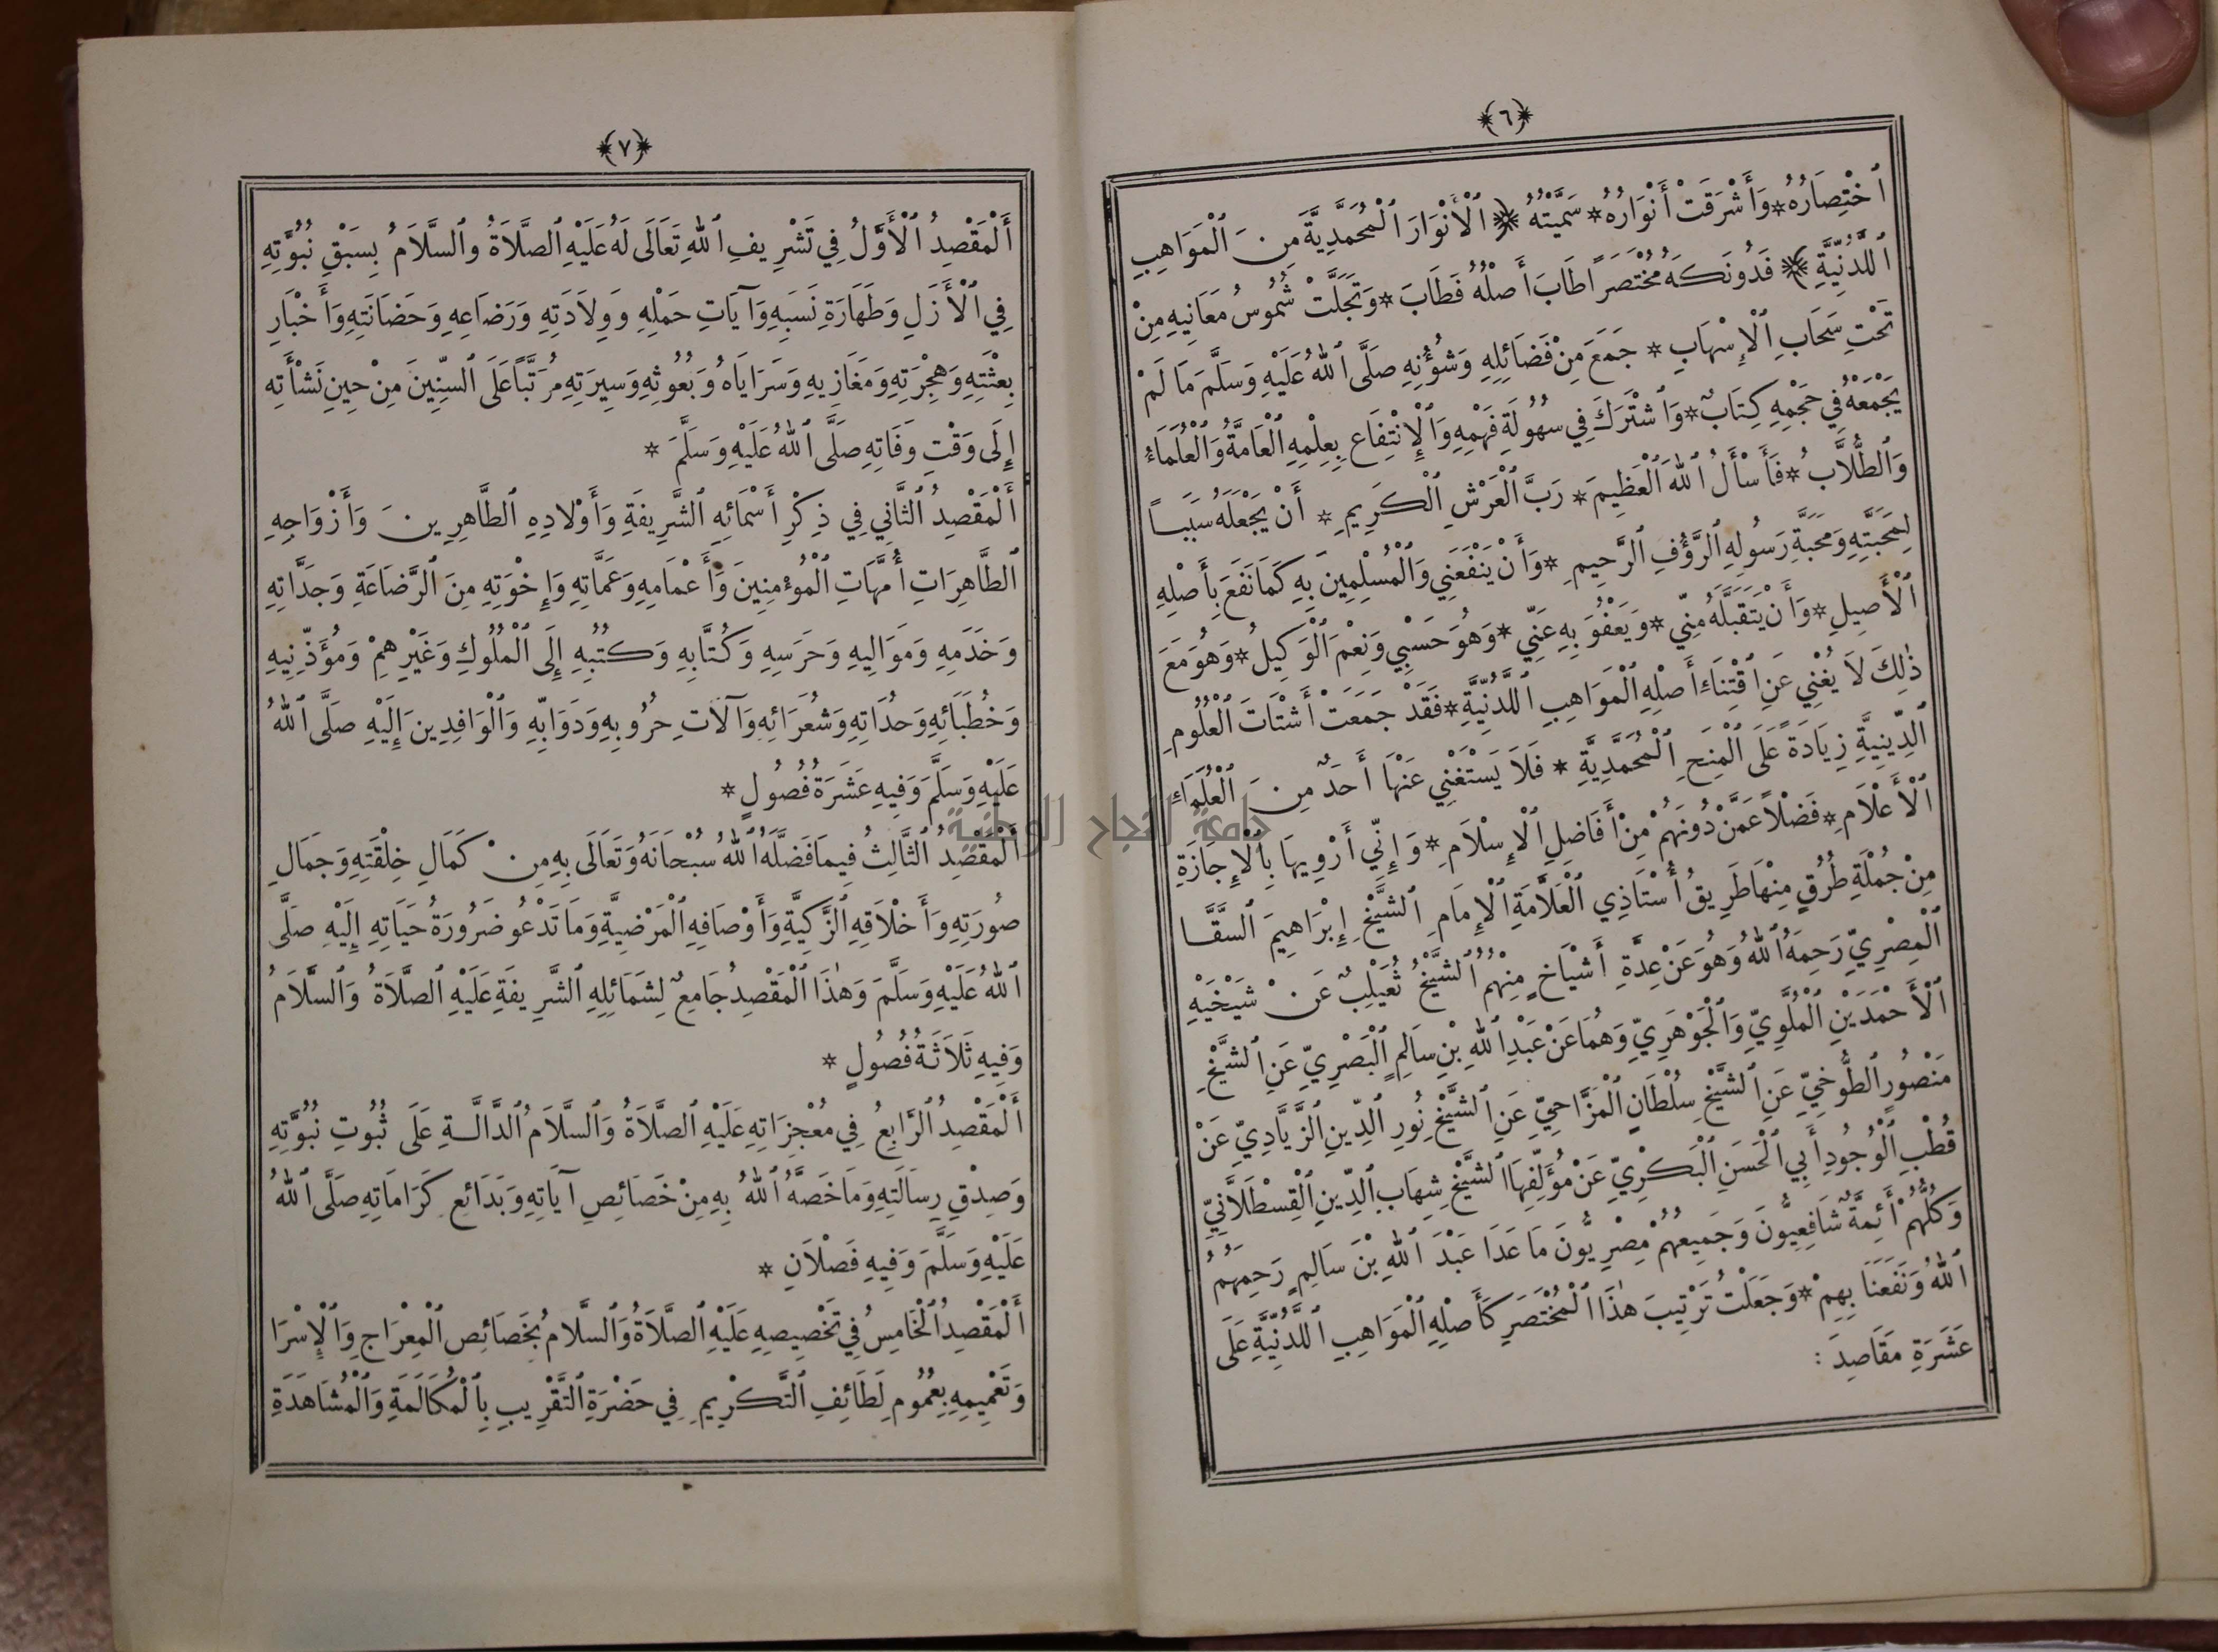 ﴿٦﴾
ٱخْتِصَارُهُ * وَأَشْرَقَتْ أَنْوَارُهُ * سَمَّيْتُهُ ﴿ ٱلْأَنْوَارَ ٱلْمُحَمَّدِيَّةَ مِنَ ٱلْمَوَاهِبِ
ٱللَّدُنِّيَّةِ ﴾ فَدُونَكَهُ مُخْتَصَرًا طَابَ أَصْلُهُ فَطَابَ * وَتَجَلَّتْ شُمُوسُ مَعَانِيهِ مِنْ
تَحْتِ سَحَابِ ٱلْإِسْهَابِ * جَمَعَ مِنْ فَضَائِلِهِ وَشُؤُنِهِ صَلَّى ٱللهُ عَلَيْهِ وَسَلَّمَ مَا لَمْ
يَجْمَعْهُ فِي حَجْمِهِ كِتَابٌ * وَٱشْتَرَكَ فِي سُهُولَةِ فَهْمِهِ وَٱلْإِنْتِفَاعِ بِعِلْمِهِ ٱلْعَامَّةُ وَٱلْعُلَمَاءُ
وَٱلطُّلَّابُ * فَأَسْأَلُ ٱللهَ ٱلْعَظِيمَ * رَبَّ ٱلْعَرْشِ ٱلْكَرِيمِ * أَنْ يَجْعَلَهُ سَبَبًا
لِمَحَبَّتِهِ وَمَحَبَّةِ رَسُولِهِ ٱلرَّؤُفِ ٱلرَّحِيمِ * وَأَنْ يَنْفَعَنِي وَٱلْمُسْلِمِينَ بِهِ كَمَا نَفَعَ بِأَصْلِهِ
ٱلْأَصِيلِ * وَأَنْ يَتَقَبَّلَهُ مِنِّي * وَيَعْفُوَ بِهِ عَنِّي * وَهُوَ حَسْبِي وَنِعْمَ ٱلْوَكِيلُ * وَهُوَ مَعَ
ذٰلِكَ لَا يُغْنِي عَنِ ٱقْتِنَاءِ أَصْلِهِ ٱلْمَوَاهِبِ ٱللَّدُنِّيَّةِ * فَقَدْ جَمَعَتْ أَشْتَاتَ ٱلْعُلُومِ
ٱلدِّينِيَّةِ زِيَادَةً عَلَى ٱلْمِنَحِ ٱلْمُحَمَّدِيَّةِ * فَلَا يَسْتَغْنِي عَنْهَا أَحَدٌ مِنَ ٱلْعُلَمَاءِ
ٱلْأَعْلَامِ * فَضْلًا عَمَّنْ دُونَهُمْ مِنْ أَفَاضِلِ ٱلْإِسْلَامِ * وَإِنِّي أَرْوِيهَا بِٱلْإِجَازَةِ
مِنْ جُمْلَةِ طُرُقٍ مِنْهَا طَرِيقُ أُسْتَاذِي ٱلْعَلَّامَةِ ٱلْإِمَامِ ٱلشَّيْخِ إِبْرَاهِيمَ ٱلسَّقَّا
ٱلْمِصْرِيِّ رَحِمَهُ ٱللهُ وَهُوَ عَنْ عِدَّةِ أَشْيَاخٍ مِنْهُمُ ٱلشَّيْخُ ثُعَيْلِبٌ عَنْ شَيْخَيْهِ
ٱلْأَحْمَدَيْنِ ٱلْمُلَّوِيِّ وَٱلْجَوْهَرِيِّ وَهُمَا عَنْ عَبْدِ ٱللهِ بْنِ سَالِمٍ ٱلْبَصْرِيِّ عَنِ ٱلشَّيْخِ
مَنْصُورٍ ٱلطُّوخِيِّ عَنِ ٱلشَّيْخِ سُلْطَانٍ ٱلْمَزَّاحِيِّ عَنِ ٱلشَّيْخِ نُورِ ٱلدِّينِ ٱلزَّيَّادِيِّ عَنْ
قُطْبِ ٱلْوُجُودِ أَبِي ٱلْحَسَنِ ٱلْبَكْرِيِّ عَنْ مُؤَلِّفِهَا ٱلشَّيْخِ شِهَابِ ٱلدِّينِ ٱلْقَسْطَلَّانِيِّ
وَكُلُّهُمْ أَئِمَّةٌ شَافِعِيُّونَ وَجَمِيعُهُمْ مِصْرِيُّونَ مَا عَدَا عَبْدَ ٱللهِ بْنَ سَالِمٍ رَحِمَهُمُ
ٱللهُ وَنَفَعَنَا بِهِمْ * وَجَعَلْتُ تَرْتِيبَ هٰذَا ٱلْمُخْتَصَرِ كَأَصْلِهِ ٱلْمَوَاهِبِ ٱللَّدُنِّيَّةِ عَلَى
عَشَرَةِ مَقَاصِدَ :
﴿٧﴾
أَلْمَقْصِدُ ٱلْأَوَّلُ فِي تَشْرِيفِ ٱللهِ تَعَالَى لَهُ عَلَيْهِ ٱلصَّلَاةُ وٱلسَّلَامُ بِسَبْقِ نُبُوَّتِهِ
فِي ٱلْأَزَلِ وَطَهَارَةِ نَسَبِهِ وَآيَاتِ حَمْلِهِ وَوِلَادَتِهِ وَرَضَاعِهِ وَحَضَانَتِهِ وَأَخْبَارِ
بِعْثَتِهِ وَهِجْرَتِهِ وَمَغَازِيهِ وَسَرَايَاهُ وَبُعُوثِهِ وَسِيرَتِهِ مُرَتَّبًا عَلَى ٱلسِّنِينَ مِنْ حِينِ نَشْأَتِهِ
إِلَى وَقْتِ وَفَاتِهِ صَلَّى ٱللهُ عَلَيْهِ وَسَلَّمَ *
أَلْمَقْصِدُ ٱلثَّانِي فِي ذِكْرِ أَسْمَائِهِ ٱلشَّرِيفَةِ وَأَوْلَادِهِ ٱلطَّاهِرِينَ وَأَزْوَاجِهِ
ٱلطَّاهِرَاتِ أُمَّهَاتِ ٱلْمُؤْمِنِينَ وَأَعْمَامِهِ وَعَمَّاتِهِ وَإِخْوَتِهِ مِنَ ٱلرَّضَاعَةِ وَجَدَّاتِهِ
وَخَدَمِهِ وَمَوَالِيهِ وَحَرَسِهِ وَكُتَّابِهِ وَكُتُبِهِ إِلَى ٱلْمُلُوكِ وَغَيْرِهِمْ وَمُؤَذِّنِيهِ
وَخُطَبَائِهِ وَحُدَاتِهِ وَشُعَرَائِهِ وَآلَاتِ حُرُوبِهِ وَدَوَابِّهِ وَٱلْوَافِدِينَ إِلَيْهِ صَلَّى ٱللهُ
عَلَيْهِ وَسَلَّمَ وَفِيهِ عَشَرَةُ فُصُولٍ *
أَلْمَقْصِدُ ٱلثَّالِثُ فِيمَا فَضَّلَهُ ٱللهُ سُبْحَانَهُ وَتَعَالَى بِهِ مِنْ كَمَالِ خِلْقَتِهِ وَجَمَالِ
صُورَتِهِ وَأَخْلَاقِهِ ٱلزَّكِيَّةِ وَأَوْصَافِهِ ٱلْمَرْضِيَّةِ وَمَا تَدْعُو ضَرُورَةُ حَيَاتِهِ إِلَيْهِ صَلَّى
ٱللهُ عَلَيْهِ وَسَلَّمَ وَهٰذَا ٱلْمَقْصِدُ جَامِعٌ لِشَمَائِلِهِ ٱلشَّرِيفَةِ عَلَيْهِ ٱلصَّلَاةُ وَٱلسَّلَامُ
وَفِيهِ ثَلَاثَةُ فُصُولٍ *
أَلْمَقْصِدُ ٱلرَّابِعُ فِي مُعْجِزَاتِهِ عَلَيْهِ ٱلصَّلَاةُ وَٱلسَّلَامُ ٱلدَّالَّةِ عَلَى ثُبُوتِ نُبُوَّتِهِ
وَصِدْقِ رِسَالَتِهِ وَمَا خَصَّهُ ٱللهُ بِهِ مِنْ خَصَائِصِ آيَاتِهِ وَبَدَائِعِ كَرَامَاتِهِ صَلَّى ٱللهُ
عَلَيْهِ وَسَلَّمَ وَفِيهِ فَصْلَانِ *
أَلْمَقْصِدُ ٱلْخَامِسُ فِي تَخْصِيصِهِ عَلَيْهِ ٱلصَّلَاةُ وَٱلسَّلَامُ بِخَصَائِصِ ٱلْمِعْرَاجِ وَٱلْإِسْرَا
وَتَعْمِيمِهِ بِعُمُومِ لَطَائِفِ ٱلتَّكْرِيمِ فِي حَضْرَةِ ٱلتَّقْرِيبِ بِٱلْمُكَالَمَةِ وَٱلْمُشَاهَدَةِ
جامعة النجاح الوطنية